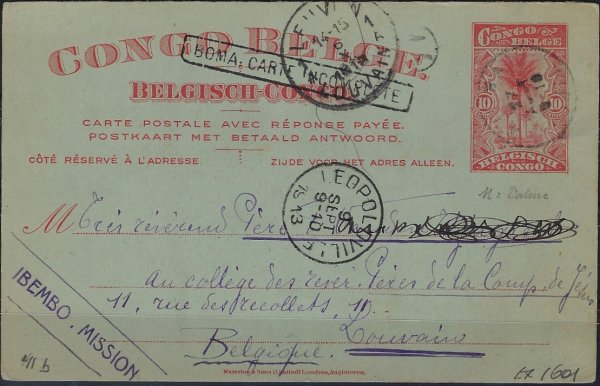 CONGO BELGE.
BELGISCH-CONGO
BOMA. CARTE INCOMPLETE
LEUVEN 1
14-15
LOUVAIN 1
CARTE POSTALE AVEC RÉPONSE PAYÉE.
POSTKAART MET BETAALD ANTWOORD.
CÔTÉ RÉSERVÉ À L'ADRESSE.
ZIJDE VOOR HET ADRES ALLEEN.
CONGO BELGE
10 10
BELGISCH CONGO
LEOPOLDVILLE
SEPT
9-10
1913
M Très révérend Père
au collège des révér. Pères de la Comp. de Jésus
11, rue des recollets, 19
Louvain
Belgique
IBEMBO. MISSION
41 b
Waterlow & Sons (Limited) Londres, Angleterre.
EX 1601